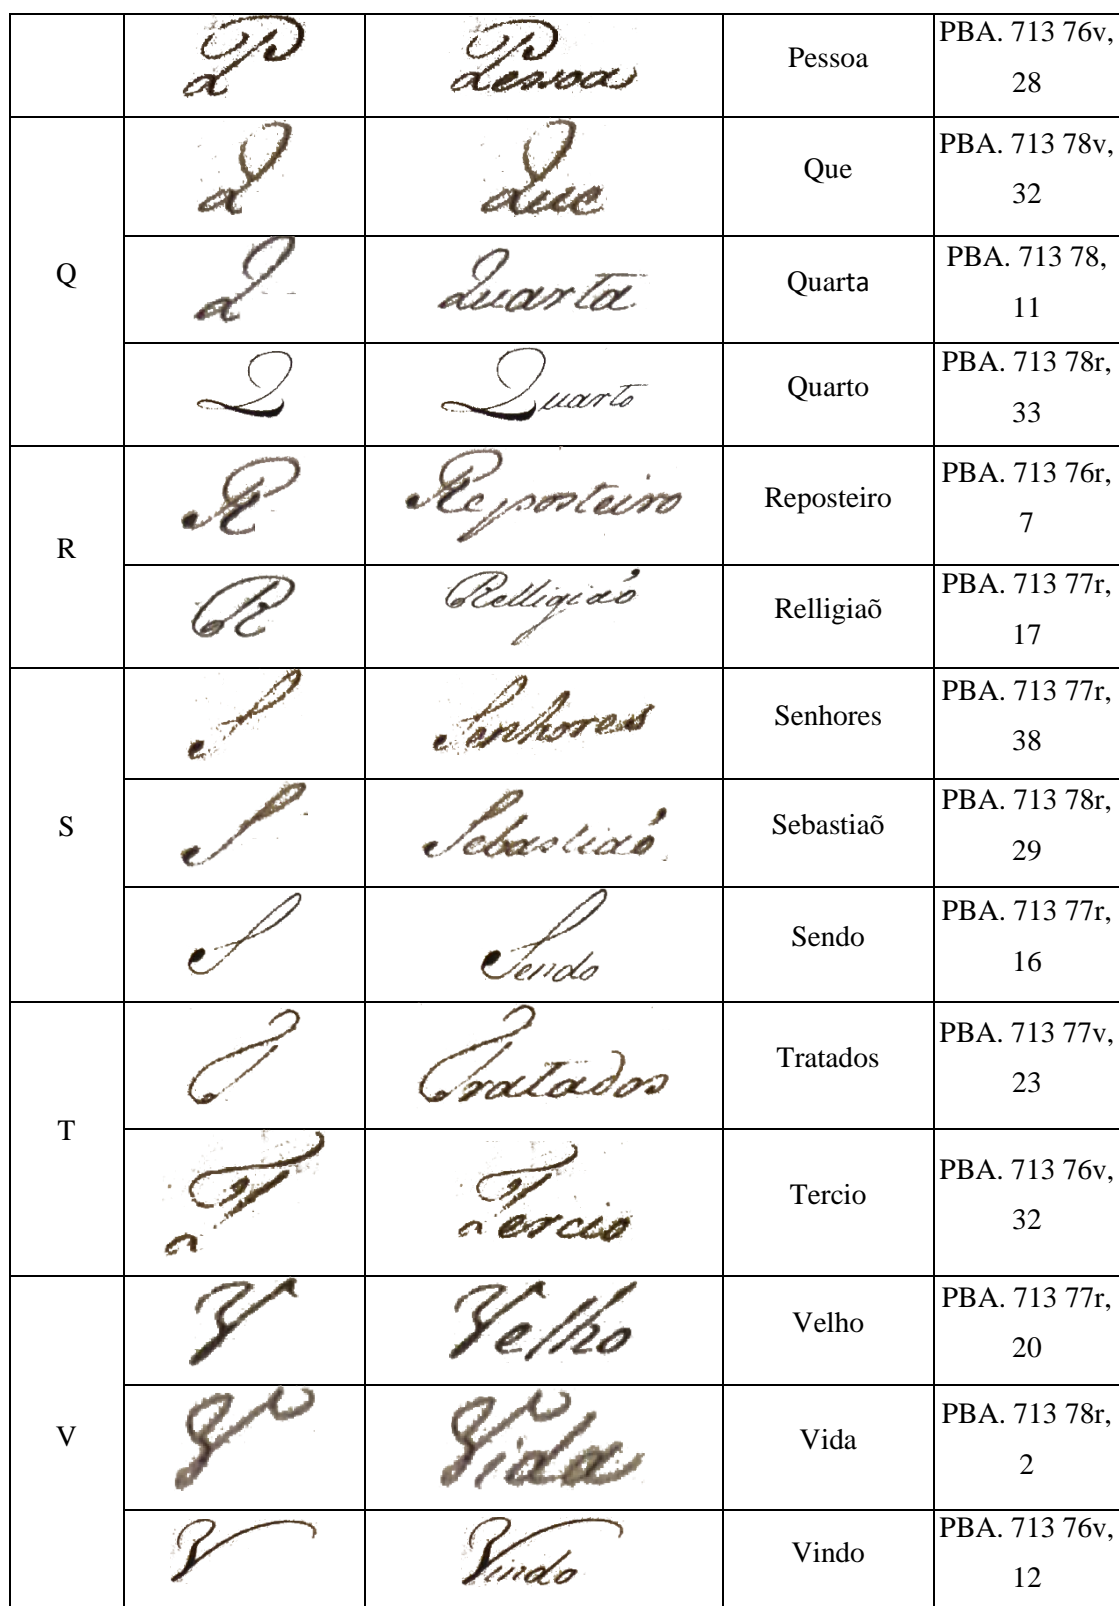 P Pessoa Pessoa PBA. 713 76v, 28
Q
Q Que Que PBA. 713 78v, 32
Q Quarta Quarta PBA. 713 78, 11
Q Quarto Quarto PBA. 713 78r, 33
R
R Reposteiro Reposteiro PBA. 713 76r, 7
R Relligiaõ Relligiaõ PBA. 713 77r, 17
S
S Senhores Senhores PBA. 713 77r, 38
S Sebastiaõ Sebastiaõ PBA. 713 78r, 29
S Sendo Sendo PBA. 713 77r, 16
T
T Tratados Tratados PBA. 713 77v, 23
T Tercio Tercio PBA. 713 76v, 32
V
V Velho Velho PBA. 713 77r, 20
V Vida Vida PBA. 713 78r, 2
V Vindo Vindo PBA. 713 76v, 12